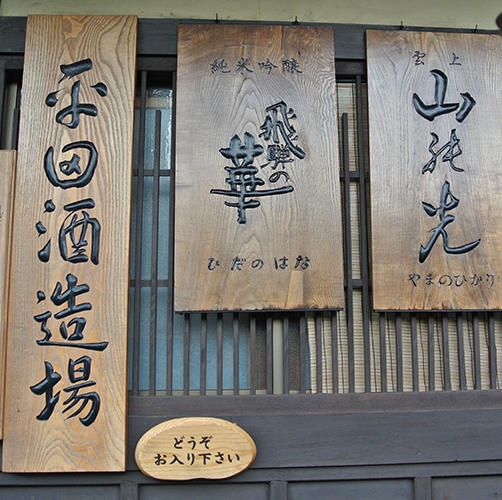 平田酒造場
純米吟醸
飛騨の
華
ひだのはな
雲上
山乃光
やまのひかり
どうぞ
お入り下さい